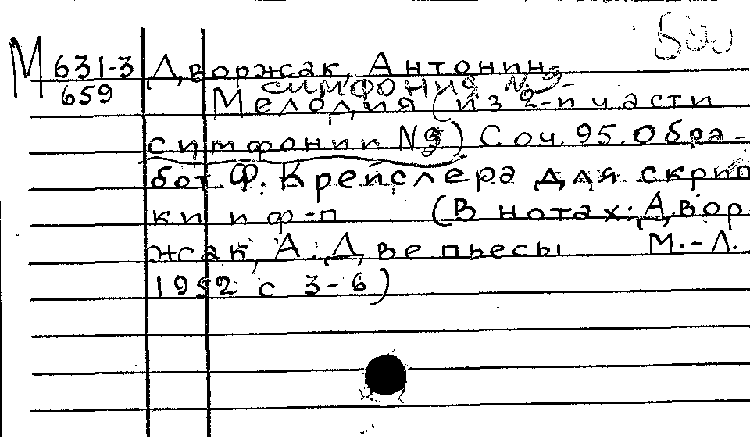 М 631-3 Дворжак, Антонин
659
симфония №
Мелодия (из 2-й части
симфонии №5) Соч. 95. Обра-
бот. Ф. Крейслера для скрип
ки и ф-п (В нотах: Двор
жак, А. Две пьесы М.-Л.
1952 с 3-6)